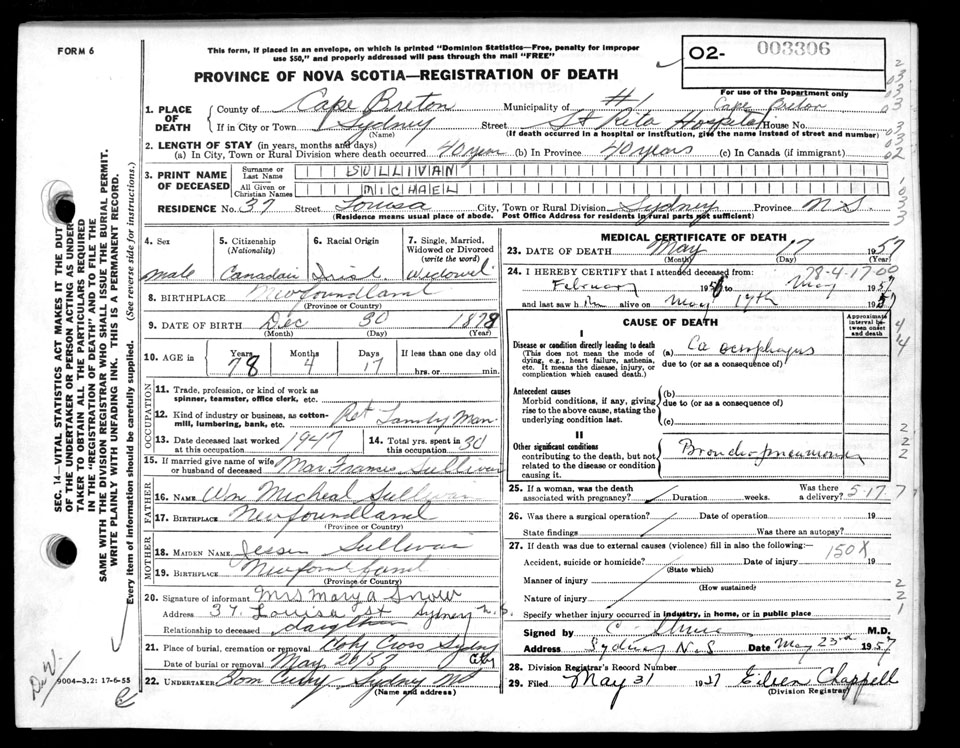 FORM 6
This form, if placed in an envelope, on which is printed "Dominion Statistics—Free, penalty for improper
use $50," and properly addressed will pass through the mail "FREE"
02- 003306
For use of the Department only
PROVINCE OF NOVA SCOTIA—REGISTRATION OF DEATH
1. PLACE OF DEATH
County of Cape Breton Municipality of #1 Cape Breton
If in City or Town Sydney Street St Rita Hospital House No.
(Name) (If death occurred in a hospital or institution, give the name instead of street and number)
2. LENGTH OF STAY (in years, months and days)
(a) In City, Town or Rural Division where death occurred 40 years (b) In Province 40 years (c) In Canada (if immigrant)
3. PRINT NAME OF DECEASED
Surname or Last Name SULLIVAN
All Given or Christian Names MICHAEL
RESIDENCE No. 37 Street Louisa City, Town or Rural Division Sydney Province N.S.
(Residence means usual place of abode. Post Office Address for residents in rural parts not sufficient)
4. Sex Male
5. Citizenship (Nationality) Canadian
6. Racial Origin Irish
7. Single, Married, Widowed or Divorced (write the word) Widowed
8. BIRTHPLACE Newfoundland
(Province or Country)
9. DATE OF BIRTH Dec 30 1878
(Month) (Day) (Year)
10. AGE in Years 78 Months 4 Days 17 If less than one day
hrs. or min.
OCCUPATION
11. Trade, profession, or kind of work as
spinner, teamster, office clerk, etc.
12. Kind of industry or business, as cotton-
mill, lumbering, bank, etc. Ret Man
13. Date deceased last worked at this occupation 1947
14. Total yrs. spent in this occupation 30
15. If married give name of wife
or husband of deceased Mar Francis Sullivan
FATHER
16. NAME Wm Micheal Sullivan
17. BIRTHPLACE Newfoundland
(Province or Country)
MOTHER
18. MAIDEN NAME Sullivan
19. BIRTHPLACE Newfoundland
(Province or Country)
20. Signature of informant Mrs Mary A Snow
Address 37 Louisa St Sydney N.S.
Relationship to deceased daughter
21. Place of burial, cremation or removal Holy Cross Sydney
Date of burial or removal May 20/57
22. UNDERTAKER Curry Sydney
(Name and address)
MEDICAL CERTIFICATE OF DEATH
23. DATE OF DEATH May 17 1957
(Month) (Day) (Year)
78-4-17-00
24. I HEREBY CERTIFY that I attended deceased from
February 195 to May 1957
and last saw h im alive on May 17th 1957
CAUSE OF DEATH
Approximate interval between onset and death
I
Disease or condition directly leading to death
(This does not mean the mode of
dying, e.g., heart failure, asthenia,
etc. It means the disease, injury, or
complication which caused death.)
(a) Ca oesophagus
due to (or as a consequence of)
Antecedent causes
Morbid conditions, if any, giving
rise to the above cause, stating the
underlying condition last.
(b)
due to (or as a consequence of)
(c)
II
Other significant conditions
contributing to the death, but not
related to the disease or condition
causing it.
Broncho-pneumonia
25. If a woman, was the death Was there
associated with pregnancy? Duration weeks. a delivery? 5-17-7
26. Was there a surgical operation? Date of operation 19
State findings Was there an autopsy?
27. If death was due to external causes (violence) fill in also the following:—
150X
Accident, suicide or homicide? Date of injury 19
(State which)
Manner of injury
(How sustained)
Nature of injury
Specify whether injury occurred in industry, in home, or in public place
Signed by M.D.
Address Sydney N.S Date May 23rd 1957
28. Division Registrar's Record Number
29. Filed May 31 1957 Eileen Chappell
(Division Registrar)
SEC. 14—VITAL STATISTICS ACT MAKES IT THE DUTY
OF THE UNDERTAKER OR PERSON ACTING AS UNDER-
TAKER TO OBTAIN ALL THE PARTICULARS REQUIRED
IN THE "REGISTRATION OF DEATH" AND TO FILE THE
SAME WITH THE DIVISION REGISTRAR WHO SHALL ISSUE THE BURIAL PERMIT.
WRITE PLAINLY WITH UNFADING INK. THIS IS A PERMANENT RECORD.
Every item of information should be carefully supplied. (See reverse side for instructions.)
9004-3.2: 17-6-55